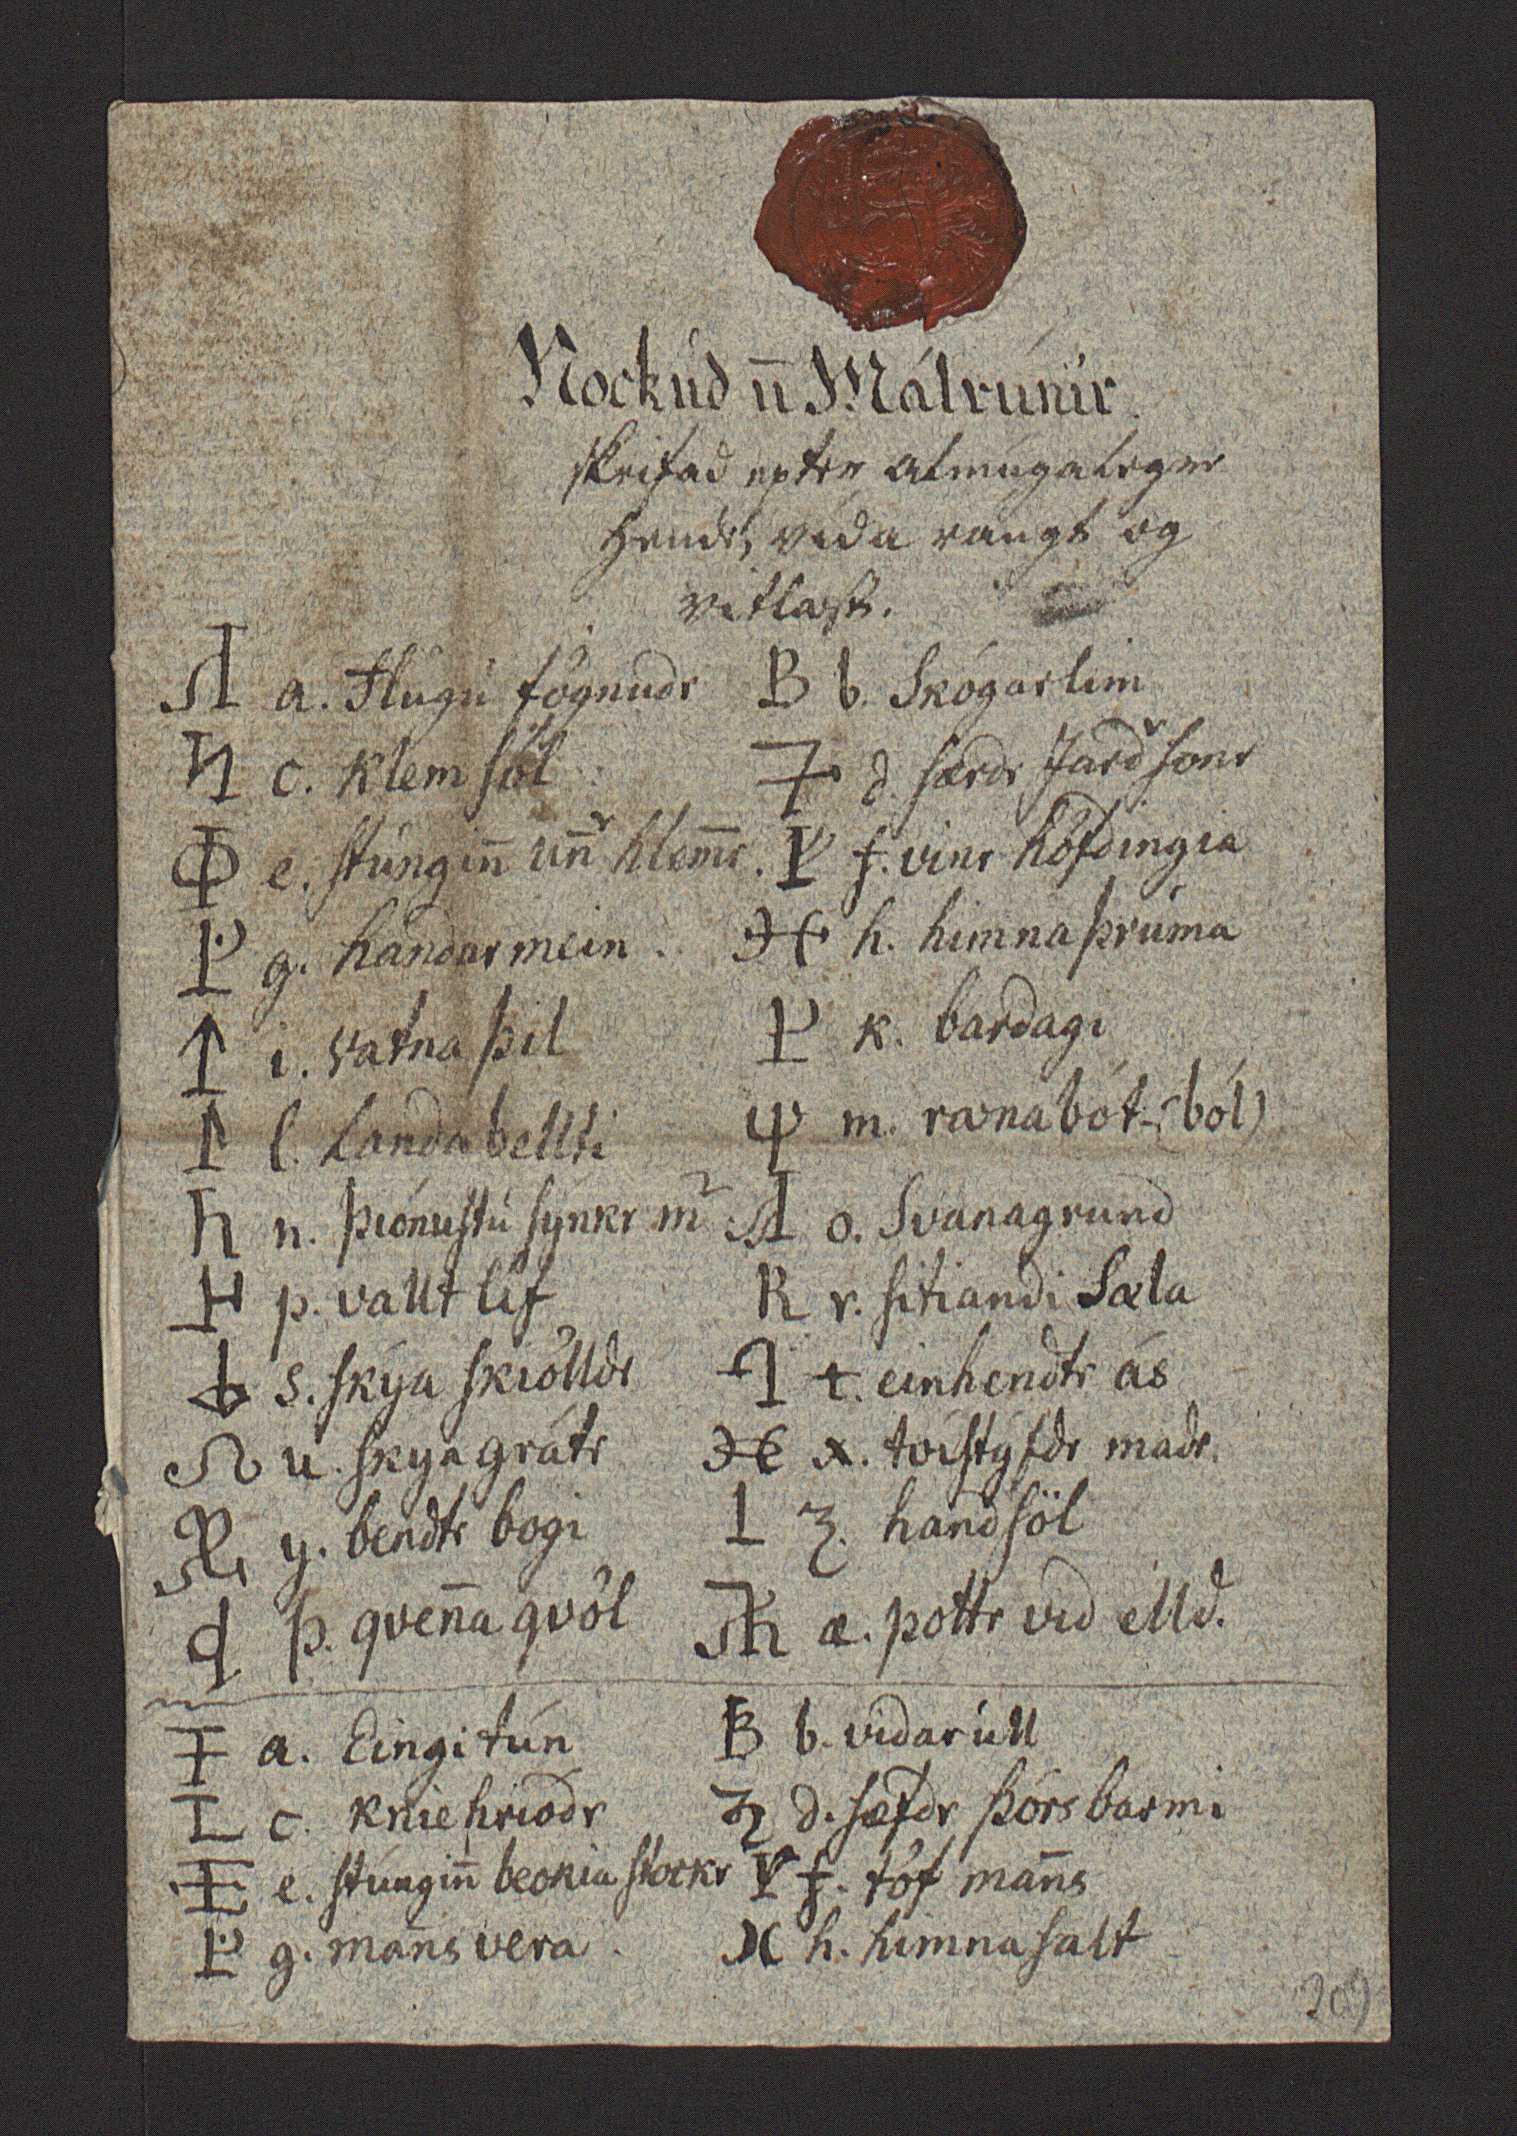 Nockúð ū Málrúnir
skrifad epter almúgalegre
hendi, vída rangt og
vitlaust.
a. Flúgú fögnuðr B b. Skógarlim
c. klem söl d. særdr Jarðʳ sonr
e. stúngin̄ un̄ʳ hlem̄r. f. vinr höfdingia
g. handar mein. h. himna þrúma
ᛏ i. vatna þil k. bardagi
ᛚ l. Landa bellti ψ m. ræna bót-(ból)
h n. þiónustú synkr mʳ o. Svanagrund
p. vallt líf R r. sitiandi Sæla
s. skýa skiölldr t. einhendtr ás
u. skya grátr x. tvístýfdr madr.
y. bendtr bogi z. hand söl
þ. qven̄a qvöl æ. pottr vid elld.
a. Eingi tún B b. vidar úll
c. knie hriodr d. sæfdr Þórs barmi
e. stúngin̄ beckia stockr f. töf man̄s
g. man̄s vera. h. himna salt
209